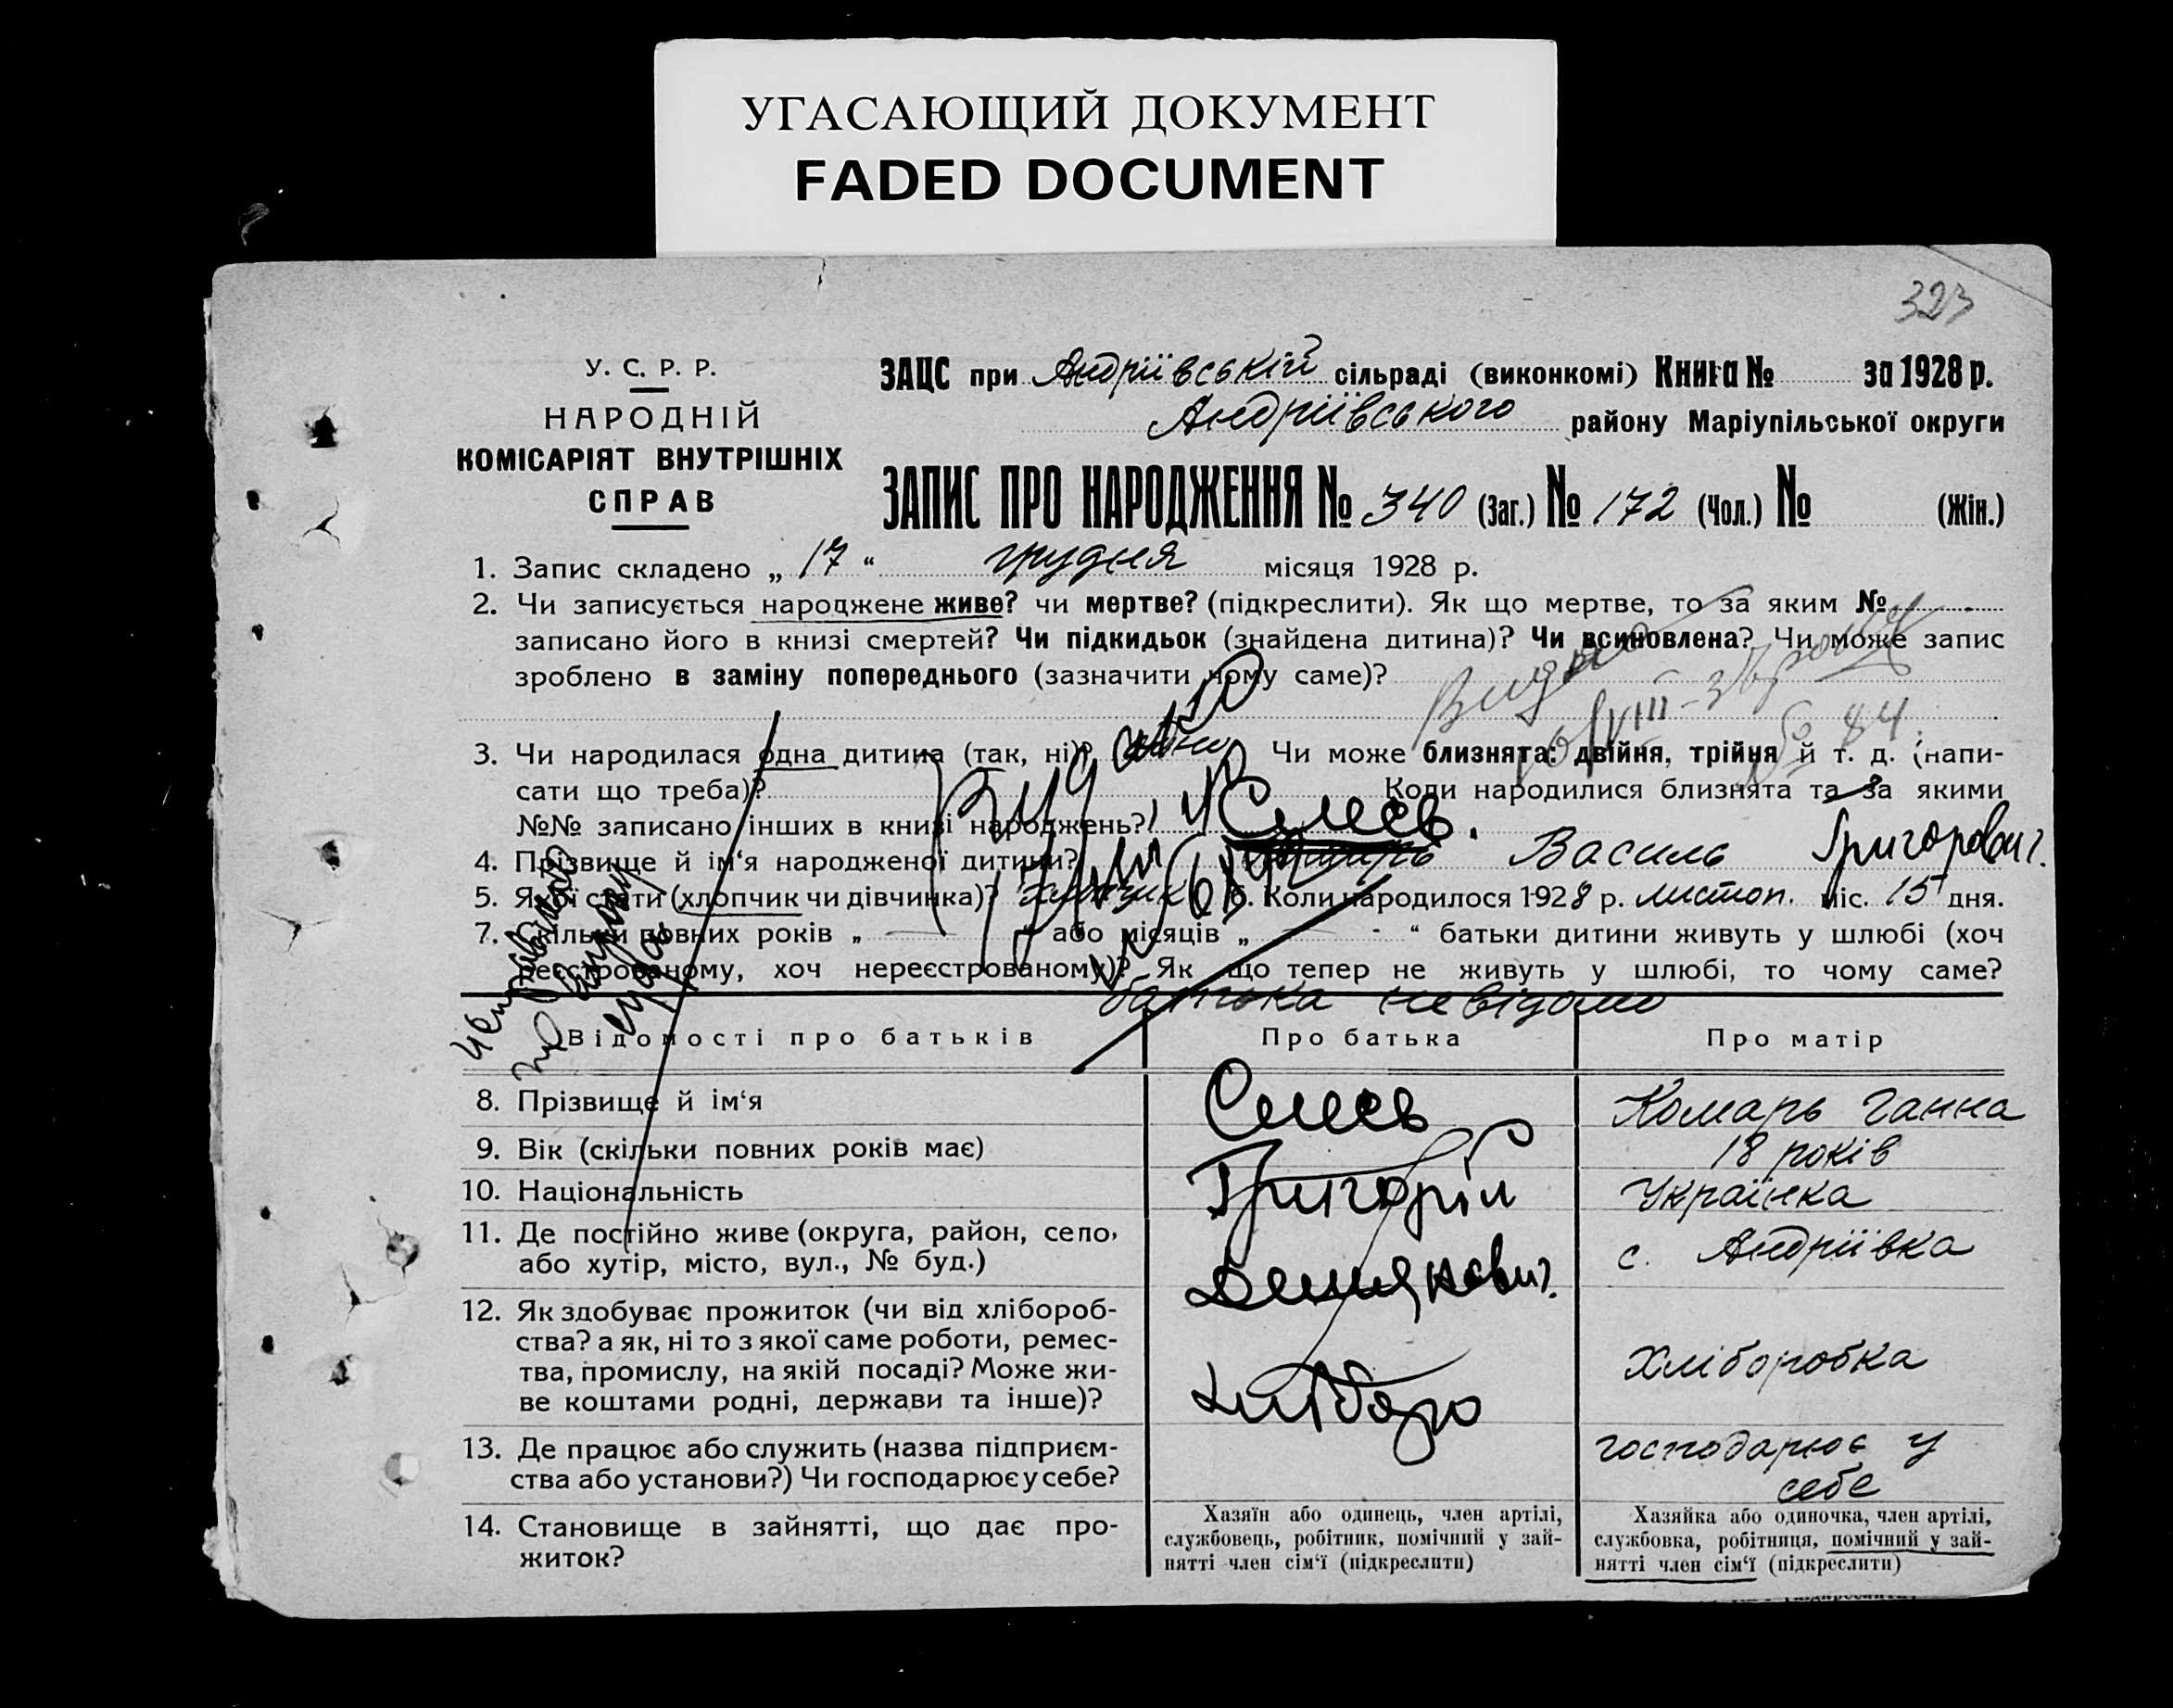 УГАСАЮЩИЙ ДОКУМЕНТ
FADED DOCUMENT
323
У. С. Р. Р.
НАРОДНІЙ
КОМІСАРІЯТ ВНУТРІШНІХ
СПРАВ
ЗАЦС при Андріївській сільраді (виконкомі) Книга № за 1928 р.
Андріївського району Маріупільської округи
ЗАПИС ПРО НАРОДЖЕННЯ № 340 (Заг.) № 172 (Чол.) № (Жін.)
1. Запис складено „ 17 “ грудня місяця 1928 р.
2. Чи записується народжене живе? чи мертве? (підкреслити). Як що мертве, то за яким №
записано його в книзі смертей? Чи підкидьок (знайдена дитина)? Чи всиновлена? Чи може запис
зроблено в заміну попереднього (зазначити чому саме)?
№ 84
3. Чи народилася одна дитина (так, ні)? Чи може близнята: двійня, трійня й т. д. (напи-
сати що треба)? Коли народилися близнята та за якими
№№ записано інших в книзі народжень?
4. Прізвище й ім‘я народженої дитини? Василь Григорович.
5. Якої стати (хлопчик чи дівчинка)? хлопчик 6. Коли народилося 1928 р. листоп. міс. 15 дня.
7. Скільки повних років „ — “ або місяців „ — “ батьки дитини живуть у шлюбі (хоч
реєстрованому, хоч нереєстрованому)? Як що тепер не живуть у шлюбі, то чому саме?
батька невідомо
Відомості про батьків Про батька Про матір
8. Прізвище й ім‘я Комарь Ганна
9. Вік (скільки повних років має) 18 років
10. Національність Григорій Українка
11. Де постійно живе (округа, район, село, с. Андріївка
або хутір, місто, вул., № буд.)
12. Як здобуває прожиток (чи від хлібороб-
ства? а як, ні то з якої саме роботи, ремес-
тва, промислу, на якій посаді? Може жи- Хліборобка
ве коштами родні, держави та інше)?
13. Де працює або служить (назва підприєм- господарює у
ства або установи?) Чи господарює у себе? себе
14. Становище в зайнятті, що дає про-
житок?
Хазяїн або одинець, член артілі,
службовець, робітник, помічний у зай-
нятті член сім‘ї (підкреслити)
Хазяйка або одиночка, член артілі,
службовка, робітниця, помічний у зай-
нятті член сім‘ї (підкреслити)